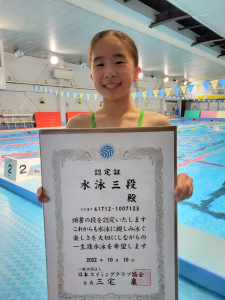 認定証
水泳三段
殿
61712-1007123
頭書の段を認定いたします
これからも水泳に親しみ泳ぐ
楽しさを大切にしながらの
一生涯水泳を希望します
2022年10月10日
一般社団法人
日本スイミングクラブ協会
会長 三宅
2